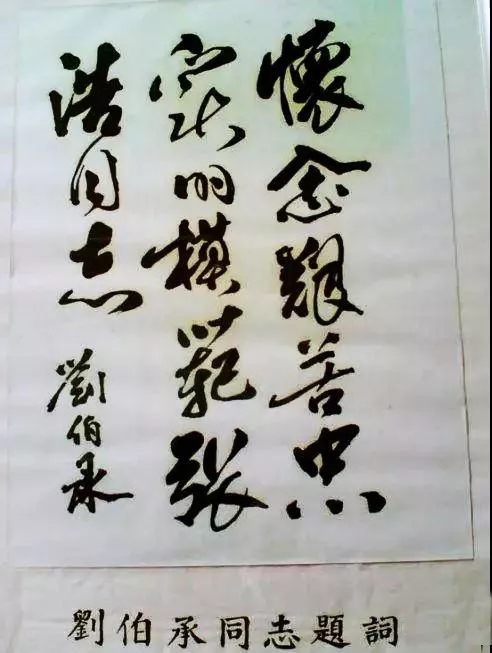 懷念艱苦忠
實的模範張
浩同志
劉伯承
劉伯承同志題詞